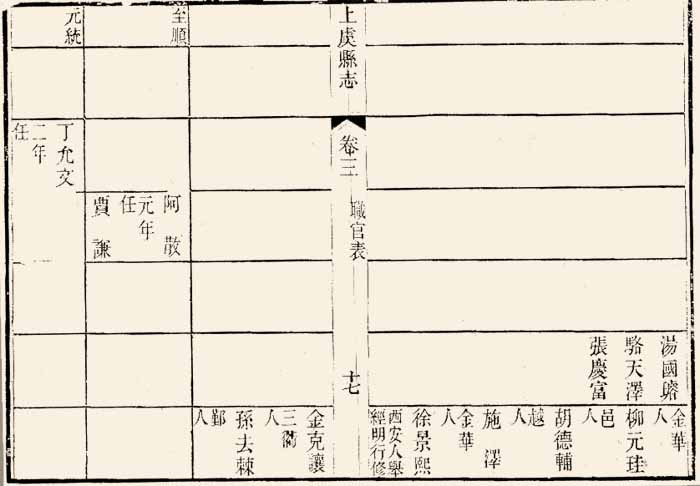 湯國
駱天澤
張慶富
金華
人
柳元珪
邑
人
胡德輔
越
人
施澤
金華
人
徐景熙
西安人舉
經明行修
上虞縣志
卷三
職官表
十七
金克讓
三衢
人
孫去棘
鄞
人
至順
阿散
元年
任
賈謙
元統
丁允文
二年
任